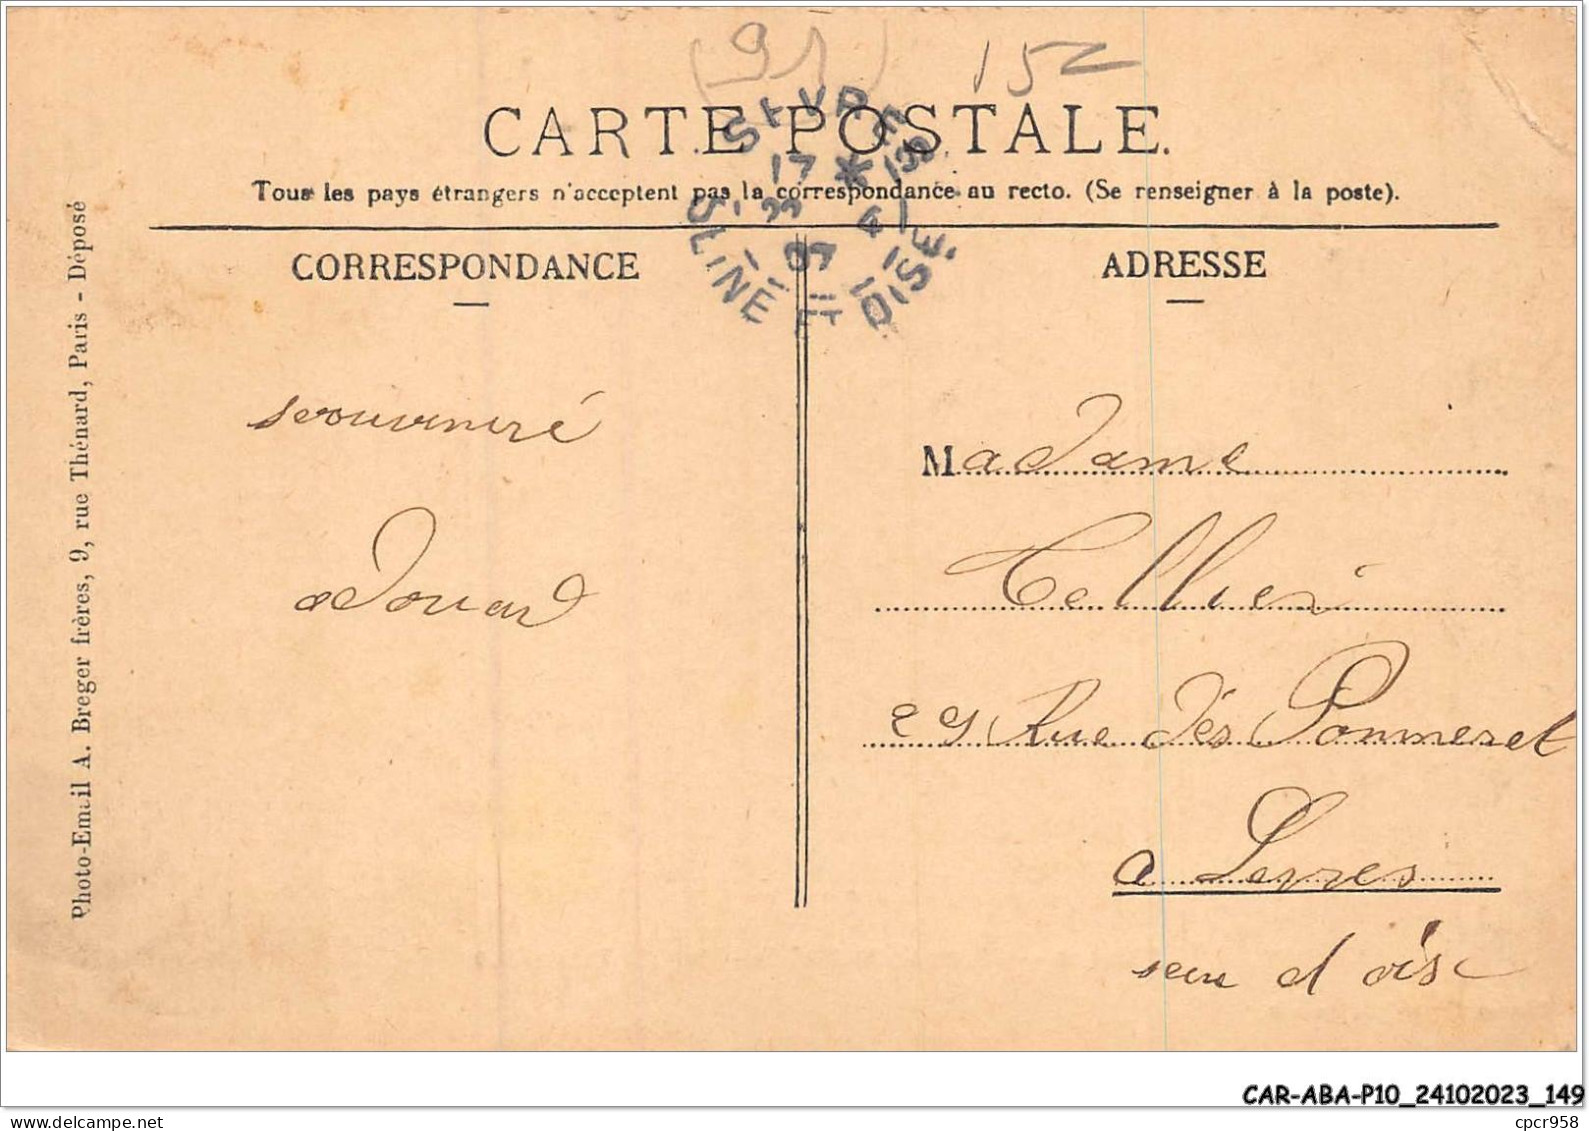 (91)
152
CARTE POSTALE.
Tous les pays étrangers n'acceptent pas la correspondance au recto. (Se renseigner à la poste).
SEVRES
17 * 
22 4
07
SEINE ET OISE
CORRESPONDANCE
ADRESSE
Photo-Email A. Breger frères, 9, rue Thénard, Paris - Déposé
seouveniré
edouard
Madame
Cellier
29 Rue des Pommeret
a Sevres
sein et oise
CAR-ABA-P10_24102023_149
cpcr958